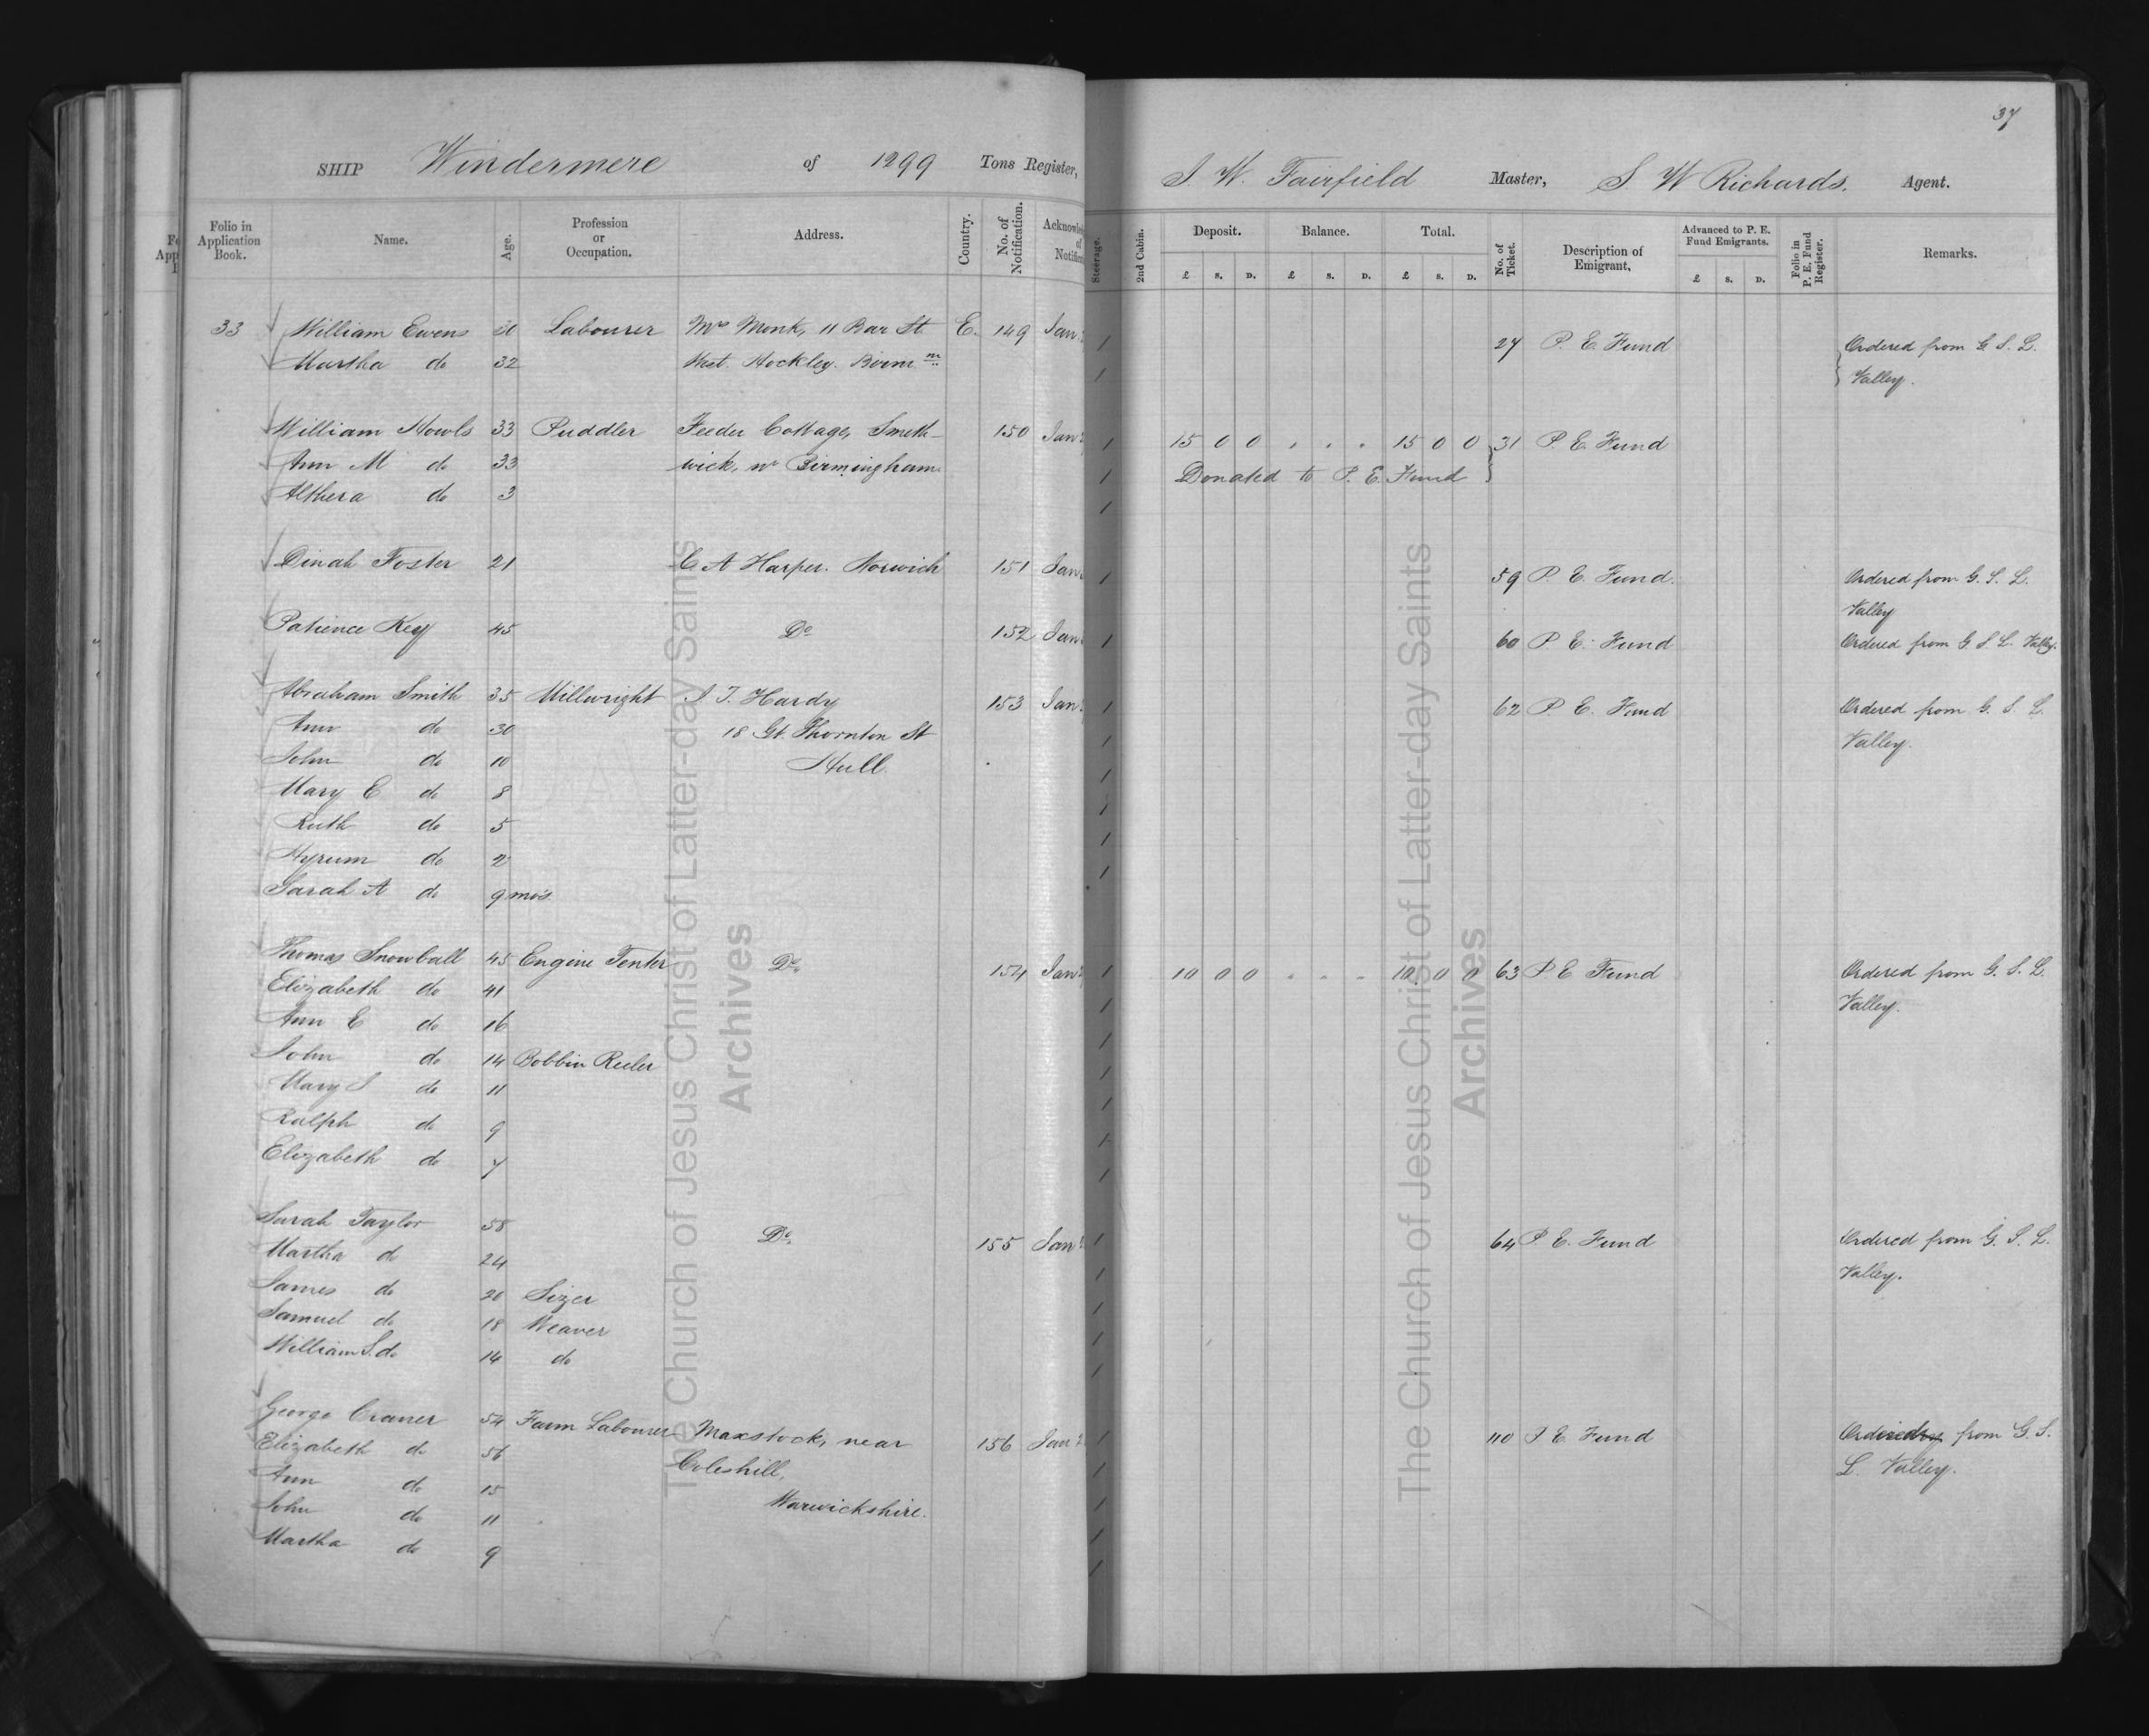 37
SHIP Windermere of 1299 Tons Register,
J. W. Fairfield Master, S W Richards. Agent.
Folio in Application Book.
Name.
Age.
Profession or Occupation.
Address.
Country.
No. of Notification.
Steerage.
2nd Cabin.
Deposit. £ S. D.
Balance. £ S. D.
Total. £ S. D.
No. of Ticket.
Description of Emigrant,
Advanced to P. E. Fund Emigrants. £ S. D.
Folio in P. E. Fund Register.
Remarks.
33 William Ewens Labourer Mrs Monk, 11 Bar St. E. 149 Jan 1 27 P. E. Fund Ordered from G S. L.
Martha do 32 West. Hockley. Birm m 1 Valley.
William Howls 33 Puddler Feeder Cottage, Smeth- 150 Jan 1 15 0 0 . . . 15 0 0 31 P. E. Fund
Ann M do 33 wick, nr Birmingham 1 Donated to P. E. Fund
Althera do 3 1
Dinah Foster 21 C A Harper. Norwich 151 Jan 1 59 P. E. Fund. Ordered from G. S. L.
Valley
Patience Key 45 Do 152 Jan 1 60 P. E. Fund Ordered from G S. L. Valley.
Abraham Smith 35 Millwright J. T. Hardy 153 Jan 1 62 P. E. Fund Ordered from G. S. L.
Ann do 30 18 Gt. Thornton St 1 Valley.
John do 10 Hull 1
Mary E do 8 1
Ruth do 5 1
Hyrum do 2 1
Sarah A do 9 mos
Thomas Snowball 45 Engine Tenter Do. 154 Jan 1 10 0 0 . . . 10 0 0 63 P E Fund Ordered from G. S. L.
Elizabeth do 41 1 Valley.
Ann E do 16 1
John do 14 Bobbin Reeler 1
Mary J do 11 1
Ralph do 9 1
Elizabeth do 7 1
Sarah Taylor 58 Do. 155 Jan 1 64 P. E. Fund Ordered from G. S. L.
Martha do 24 1 Valley.
James do 20 Sizer 1
Samuel do 18 Weaver 1
William S. do 14 do 1
George Craner 54 Farm Labourer Maxstock, near 156 Jan 1 110 P E Fund Ordered from G. S.
Elizabeth do 56 Coleshill, 1 L. Valley.
Ann do 15 Warwickshire. 1
John do 11 1
Martha do 9 1
The Church of Jesus Christ of Latter-day Saints
Archives
The Church of Jesus Christ of Latter-day Saints
Archives